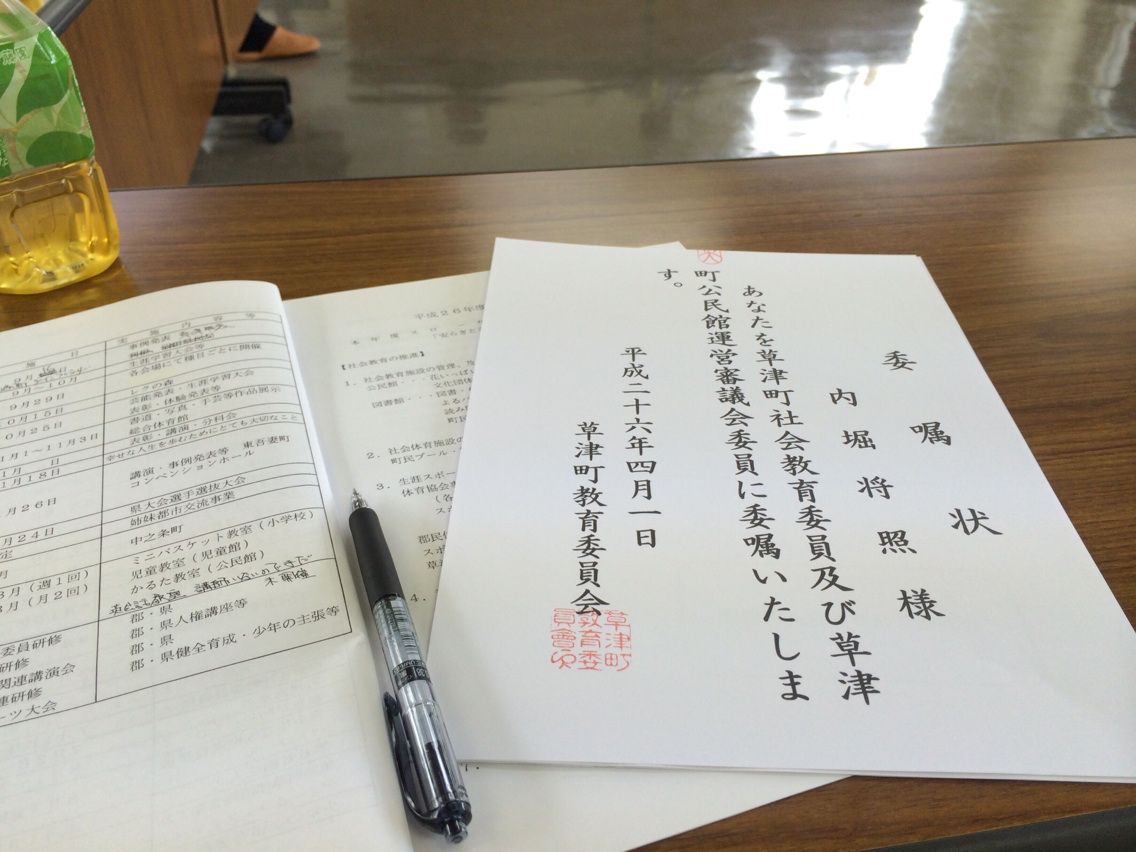 委嘱状
内堀将照様
あなたを草津町社会教育委員及び草津
町公民館運営審議会委員に委嘱いたしま
す。
平成二十六年四月一日
草津町教育委員会
草津町
教育委
員會
平成26年度
本年度スロー
【社会教育の推進】
1．社会教育施設の管理、
公民館・・・花いっぱい
文化団体
図書館・・・図書
よる
読み
町民
2．社会体育施設の
町民プール・
3．生涯スポー
体育協会
（各
スポ
郡民体
スポ
草
4．
施 日 実 施 内 容 等
事例発表
生涯学習大会等
9月・10月 各会場にて種目ごとに開催
9月29日 レクの森
10月15日 芸能発表・生涯学習大会
10月25日 表彰・体験発表等
1月1～11月3日 書道・写真・手芸等作品展示
月 日 総合体育館
1月18日 表彰・講演・分科会
幸せな人生を歩むためにとても大切なこと
講演・事例発表等 東吾妻町
コンベンションホール
月26日 県大会選手選抜大会
月24日 姉妹都市交流事業
定 中之条町
月 ミニバスケット教室（小学校）
月（週1回） 児童教室（児童館）
月（月2回） かるた教室（公民館）
講師いない 未開催
委員研修 郡・県
研修 郡・県人権講座等
関連講演会 郡・県
連研修 郡・県健全育成・少年の主張等
ーツ大会